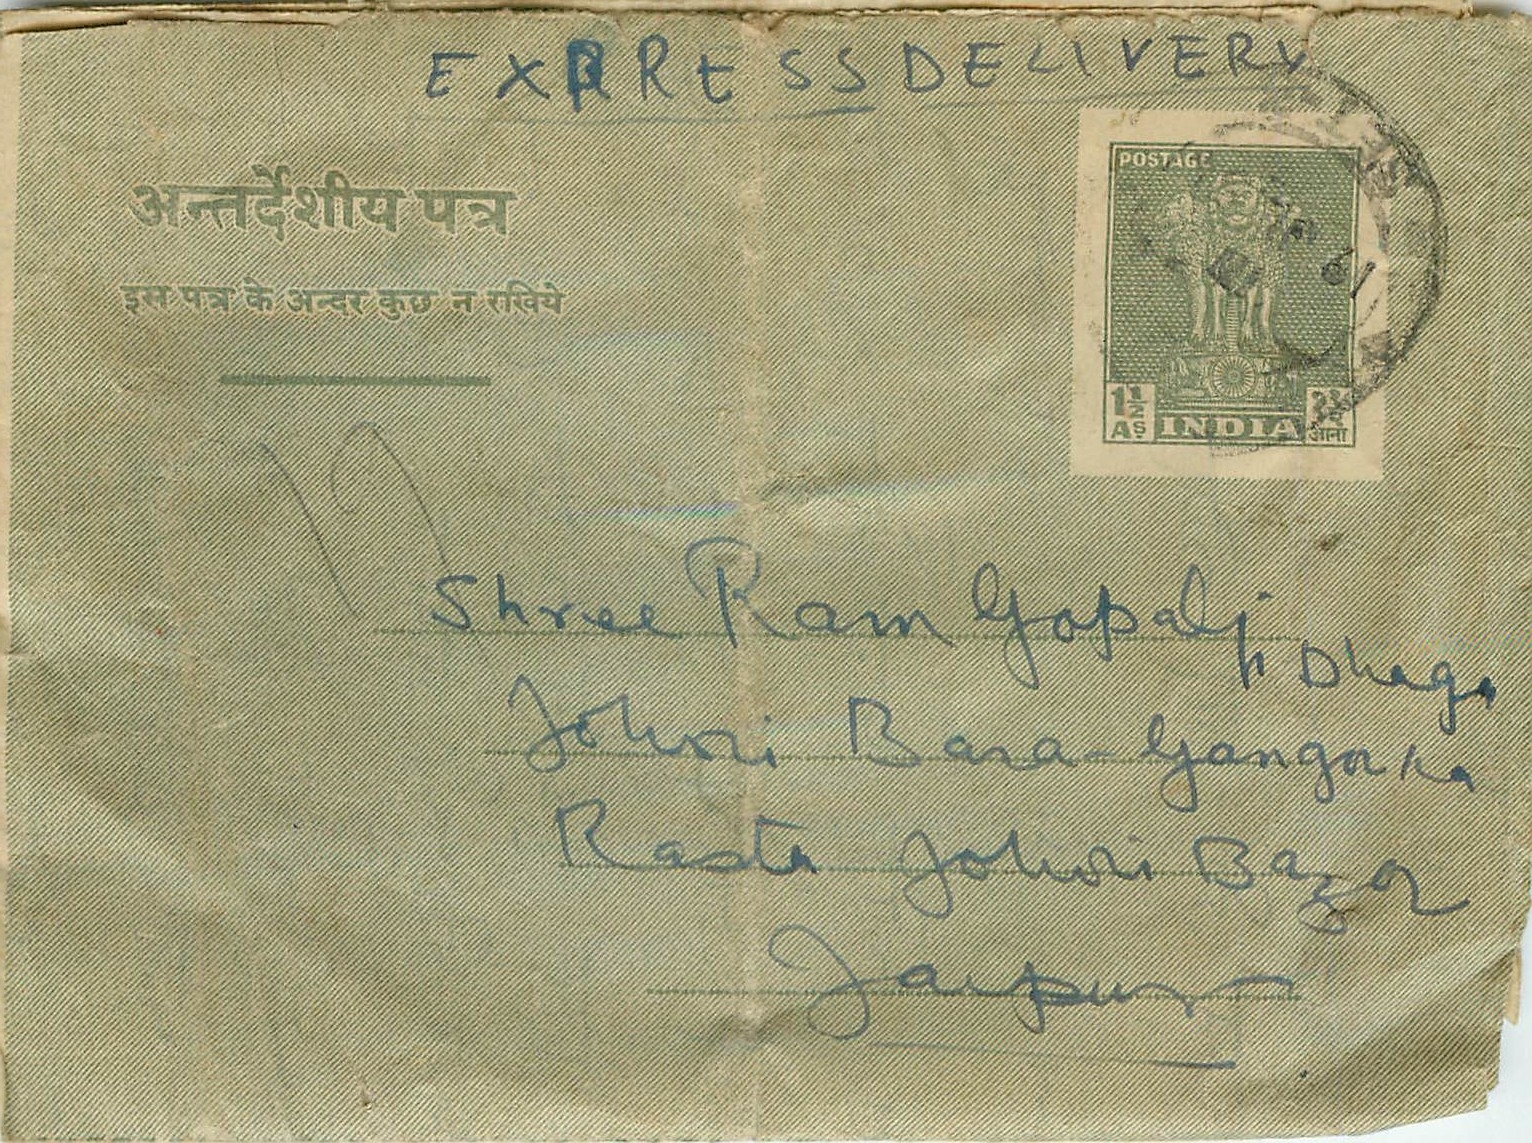 EXPRESS DELIVERY
अन्तर्देशीय पत्र
इस पत्र के अन्दर कुछ न रखिये
POSTAGE
1½ As
INDIA
१½ आना
Shree Ram Gopalji Dhaga
Johori Bara-Gangor ka
Rasta Johori Bazar
Jaipur